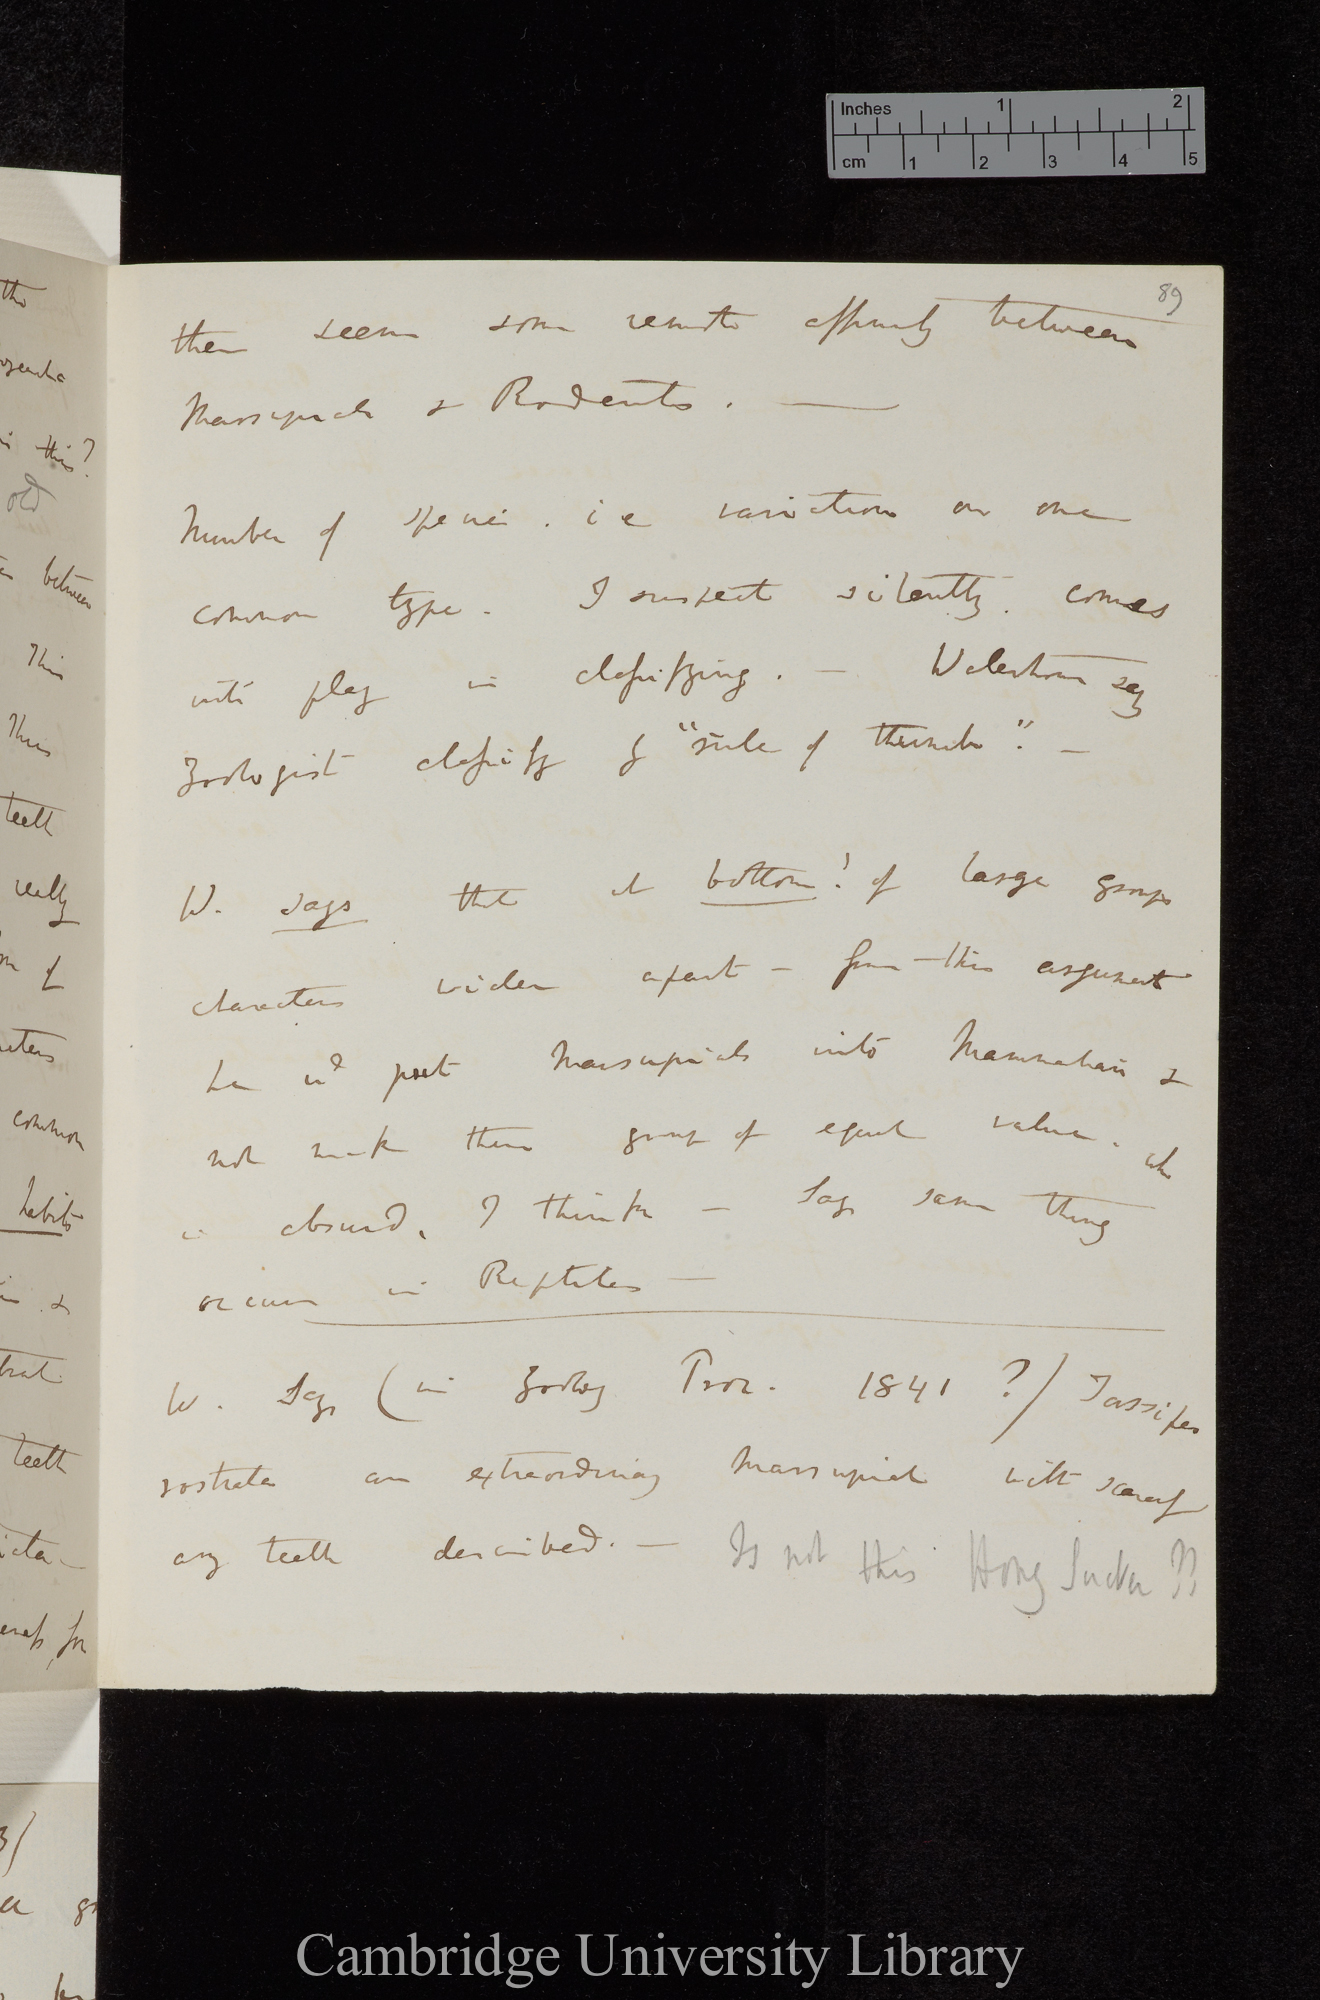 Inches 1 2
cm 1 2 3 4 5
89
there seems some remote affinity between
Marsupials & Rodents. —
Number of species. i e variation on one
common type. I suspect silently. comes
into play in classifying. — Waterhouse says
Zoologist classify by "rule of thumb". —
W. says that at bottom! of large groups
characters wider apart — from this argument
he wd put Marsupials into Mammalia &
not make them group of equal value. wh
is absurd, I think — Says same thing
occurs in Reptiles —
W. Says (in Zoolog Proc. 1841 ?) Tarsipes
rostrata an extraordinary Marsupial with scarcely
any teeth described. — Is not this Hony Sucker ??
the
in this?
old
between
This
This
teeth
really
of
common
habits
in &
teeth
for
Cambridge University Library